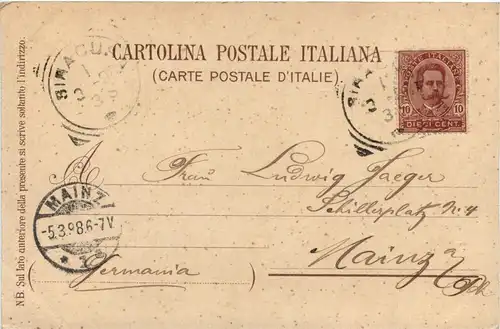 CARTOLINA POSTALE ITALIANA
(CARTE POSTALE D'ITALIE)
POSTE ITALIANE
10 10
DIECI CENT.
SIRACUSA
N B. Sul lato anteriore della presente si scrive soltanto l'indirizzo.
A Frau Ludwig Jaeger
Schillerplatz No 4
Mainz a/Rh
Germania
MAINZ
-5.3.98.6-7V.
* 1 *